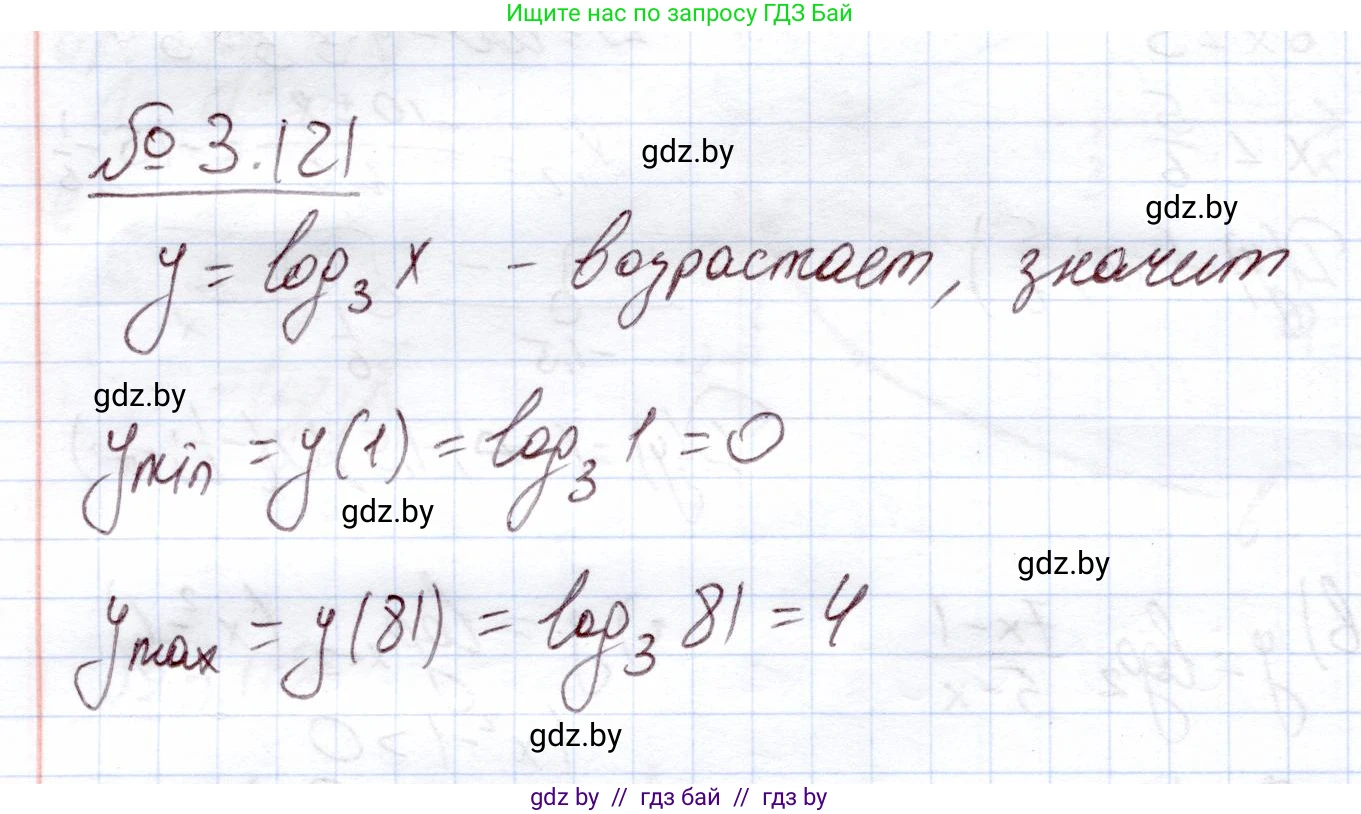 Ищите нас по запросу ГДЗ Бай
№ 3.121
gdz.by
gdz.by
y = log₃ x - возрастает, значит
gdz.by
y min = y(1) = log₃ 1 = 0
gdz.by
gdz.by
y max = y(81) = log₃ 81 = 4
gdz.by
gdz by // гдз бай // гдз by